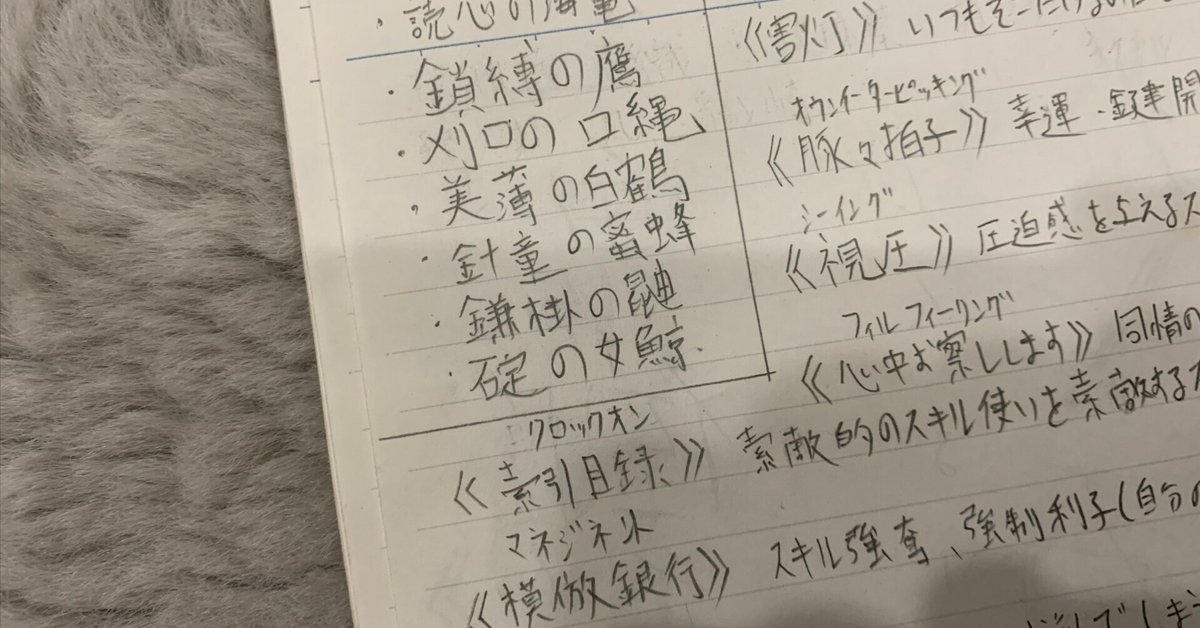 ・読心の海亀
・鎖縛の鷹
・刈口の口縄
・美薄の白鶴
・針童の蜜蜂
・鎌掛の鼬
・碇の女鯨
《割灯》いつもそこに
オウンイーターピッキング
《脈々拍子》幸運・鍵開
シーイング
《視圧》圧迫感を与えるス
フィルフィーリング
《心中お察しします》同情の
クロックオン
《索引目録》索敵的のスキル使いを索敵するス
マネジネント
《模倣銀行》スキル強奪、強制利子(自分の
でしま